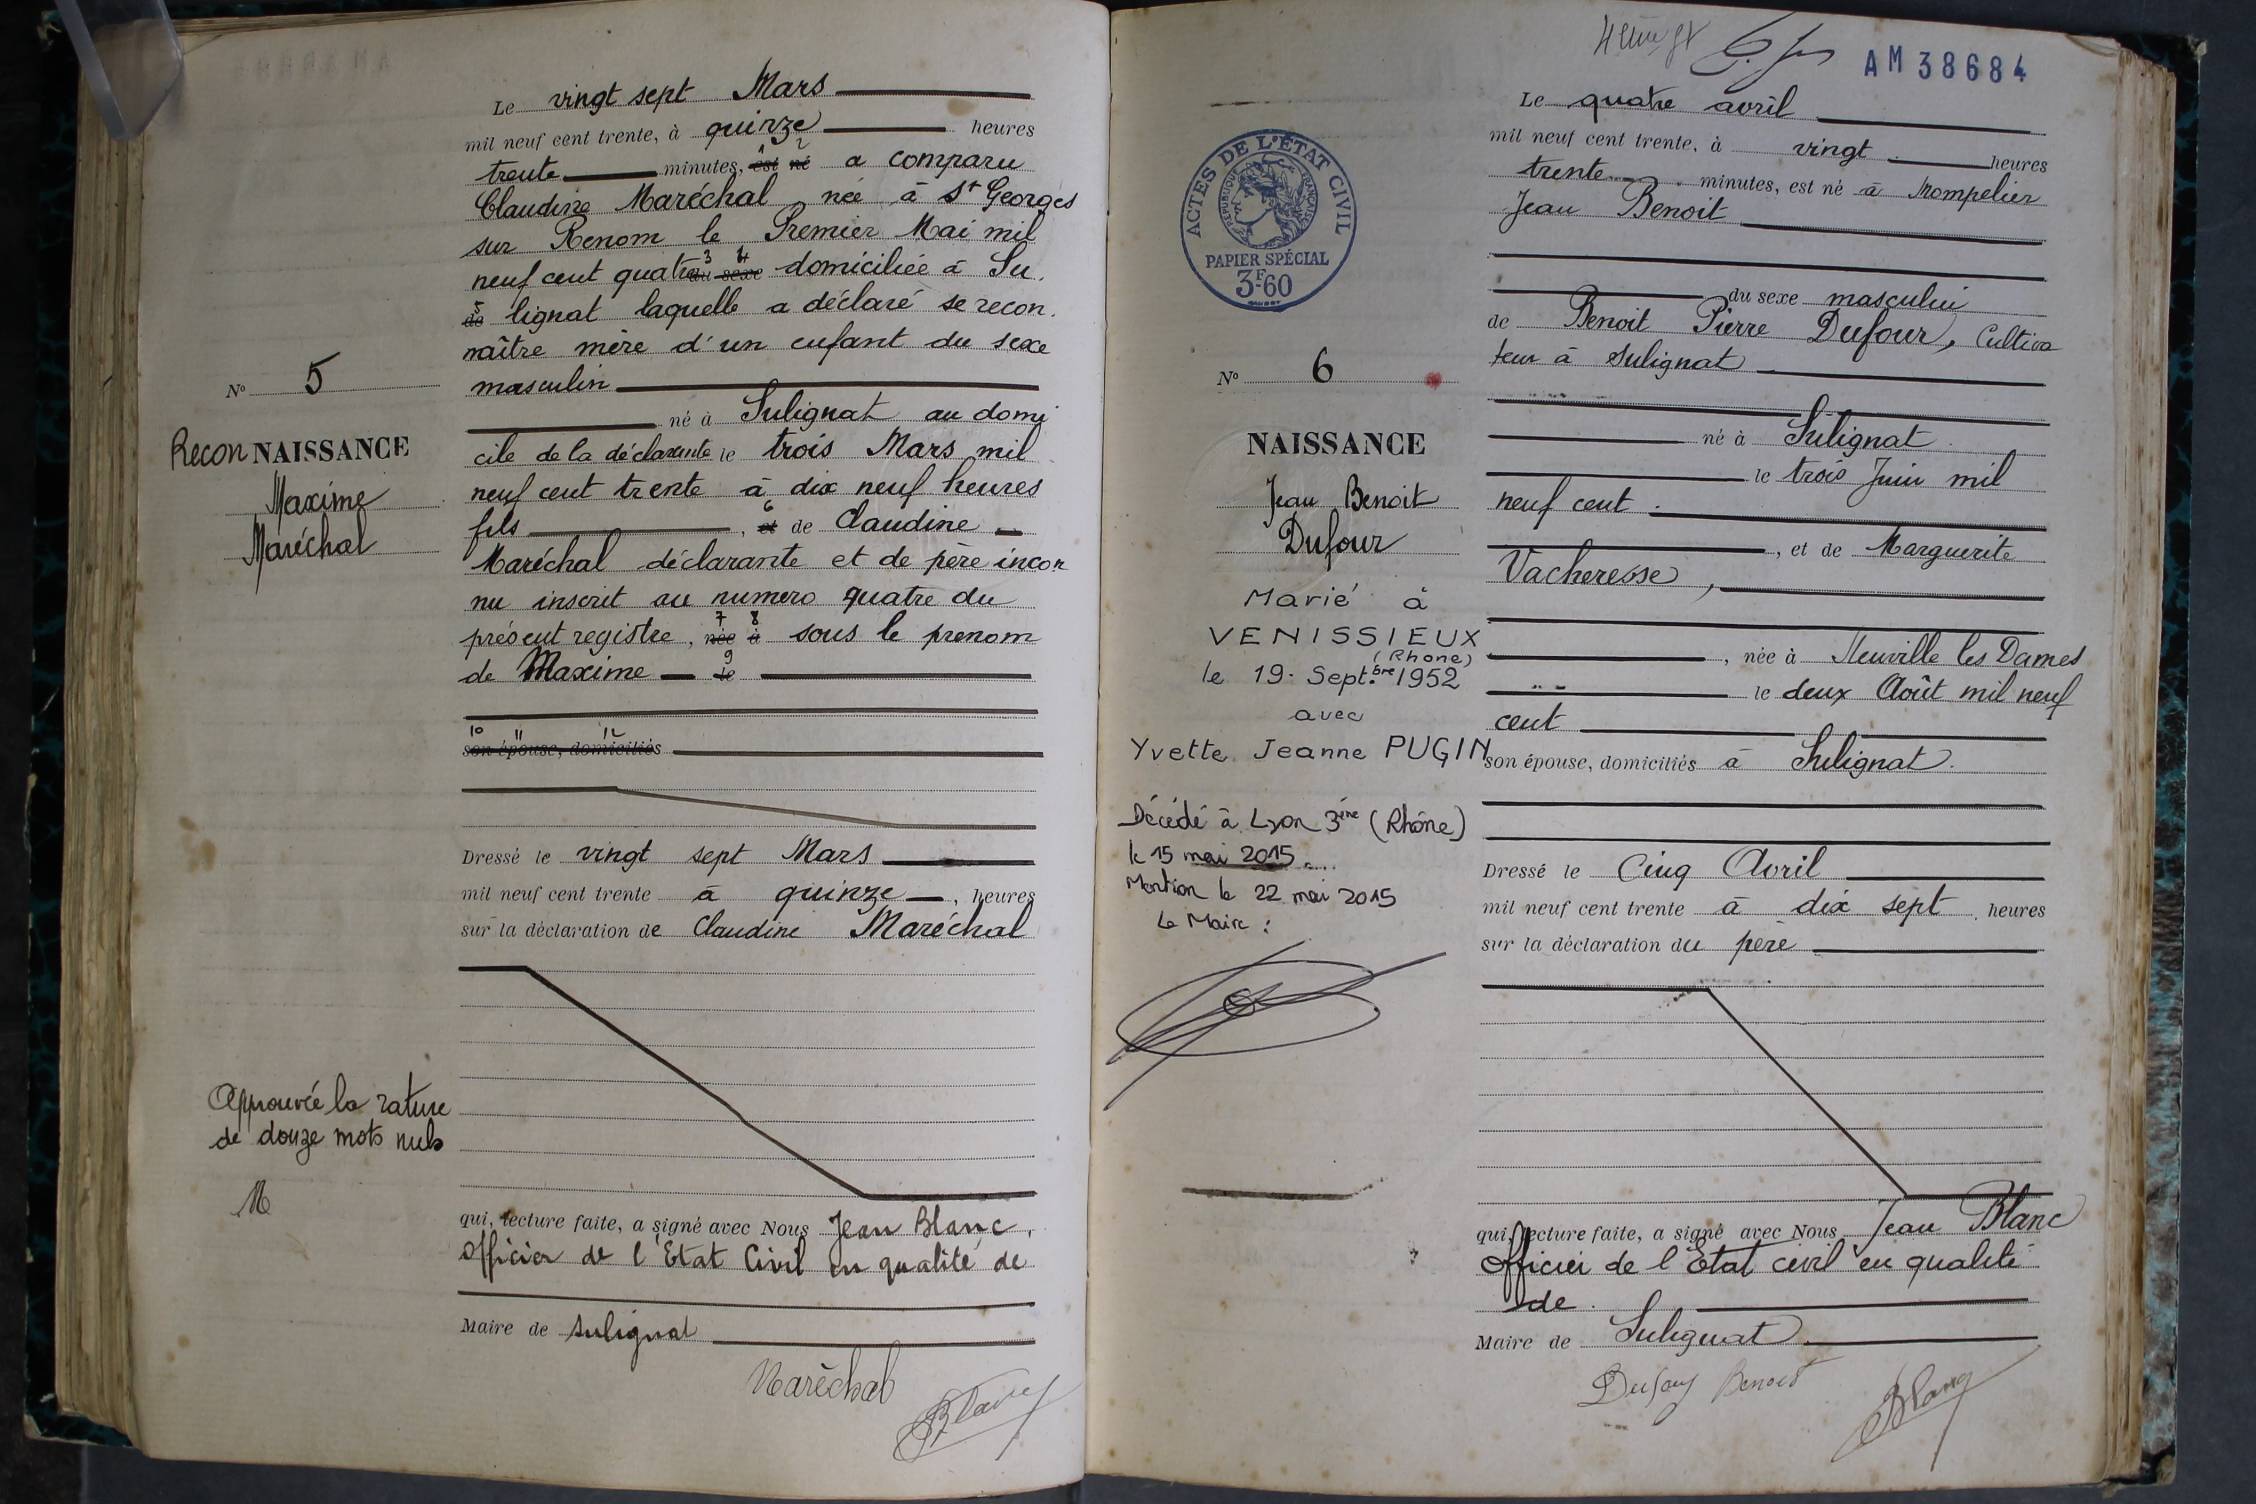 Le vingt sept Mars
mil neuf cent trente, à quinze heures
trente minutes, est né a comparu
Claudine Maréchal née à St Georges
sur Renom le Premier Mai mil
neuf cent quatre du sexe domiciliée à Su.
de lignat laquelle a déclaré se recon.
naître mère d'un enfant du sexe
masculin
né à Sulignat au domi
cile de la déclarante le trois Mars mil
neuf cent trente à dix neuf heures
fils , et de Claudine
Maréchal déclarante et de père incon
nu inscrit au numero quatre du
présent registre, née à sous le prenom
de Maxime le
son épouse, domiciliés
Dressé le vingt sept Mars
mil neuf cent trente à quinze, heures
sur la déclaration de Claudine Maréchal
qui, lecture faite, a signé avec Nous Jean Blanc,
officier de l'Etat Civil en qualité de
Maire de Sulignat
Maréchal
Blanc
No 5
Recon NAISSANCE
Maxime
Maréchal
Approuvée la rature
de douze mots nuls
M
AM 38684
ACTES DE L'ÉTAT CIVIL
RÉPUBLIQUE FRANÇAISE
PAPIER SPÉCIAL
3F.60
No 6
NAISSANCE
Jean Benoit
Dufour
Marié à
VENISSIEUX
(Rhone)
le 19. Sept.bre 1952
avec
Yvette Jeanne PUGIN
Décédé à Lyon 3ème (Rhône)
le 15 mai 2015
Mention le 22 mai 2015
Le Maire :
Le quatre avril
mil neuf cent trente, à vingt heures
trente minutes, est né à Mompelier
Jean Benoit
du sexe masculin
de Benoit Pierre Dufour, Cultiva
teur à Sulignat
né à Sulignat
le trois Juin mil
neuf cent
, et de Marguerite
Vacheresse,
, née à Neuville les Dames
le deux Août mil neuf
cent
son épouse, domiciliés à Sulignat.
Dressé le Cinq Avril
mil neuf cent trente à dix sept heures
sur la déclaration du père
qui, lecture faite, a signé avec Nous Jean Blanc
Officier de l'Etat civil en qualité
de
Maire de Sulignat
Dufour Benoit
Blanc